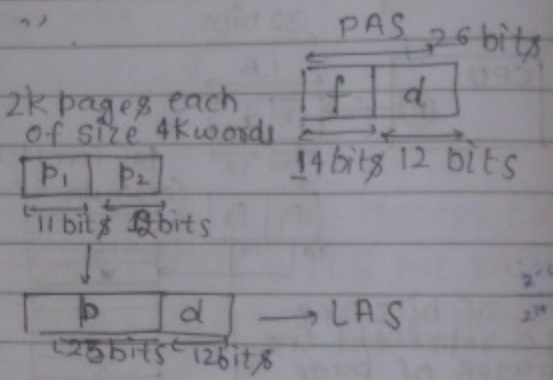 PAS
26 bits
f d
14 bits 12 bits
2k pages each
of size 4K words
P1 P2
11 bits 12 bits
p d → LAS
12 bits